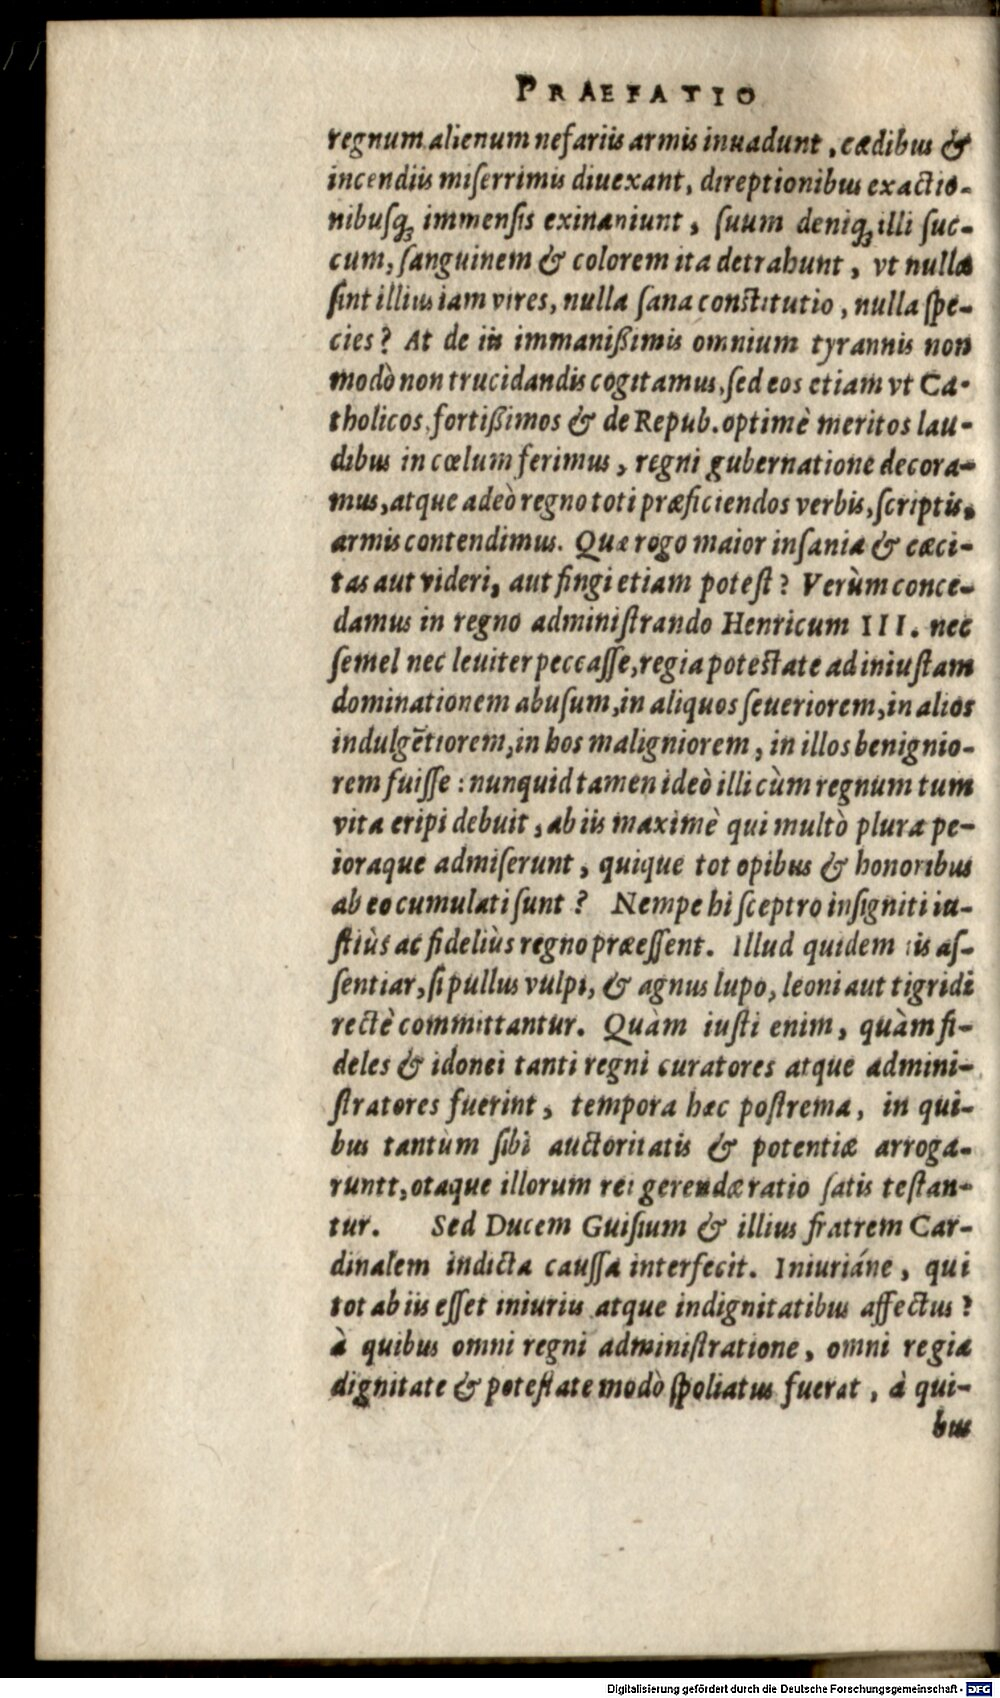 PRAEFATIO
regnum alienum nefariis armis inuadunt, cædibus &
incendiis miserrimis diuexant, direptionibus exactio-
nibusq; immensis exinaniunt, suum deniq; illi suc-
cum, sanguinem & colorem ita detrahunt, vt nullæ
sint illius iam vires, nulla sana constitutio, nulla spe-
cies? At de iis immanißimis omnium tyrannis non
modò non trucidandis cogitamus, sed eos etiam vt Ca-
tholicos, fortißimos & de Repub. optimè meritos lau-
dibus in cœlum ferimus, regni gubernatione decora-
mus, atque adeò regno toti præficiendos verbis, scriptis,
armis contendimus. Quæ rogo maior insania & cæci-
tas aut videri, aut fingi etiam potest? Verùm conce-
damus in regno administrando Henricum III. nec
semel nec leuiter peccasse, regia potestate ad iniustam
dominationem abusum, in aliquos seueriorem, in alios
indulgẽtiorem, in hos maligniorem, in illos benignio-
rem fuisse: nunquid tamen ideò illi cùm regnum tum
vita eripi debuit, ab iis maximè qui multò plura pe-
ioraque admiserunt, quique tot opibus & honoribus
ab eo cumulati sunt? Nempe hi sceptro insigniti iu-
stiùs ac fideliùs regno præessent. Illud quidem iis as-
sentiar, si pullus vulpi, & agnus lupo, leoni aut tigridi
rectè committantur. Quàm iusti enim, quàm fi-
deles & idonei tanti regni curatores atque admini-
stratores fuerint, tempora hæc postrema, in qui-
bus tantùm sibi auctoritatis & potentiæ arroga-
runtt, otaque illorum rei gerendæ ratio satis testan-
tur. Sed Ducem Guisium & illius fratrem Car-
dinalem indicta caussa interfecit. Iniuriáne, qui
tot ab iis esset iniuriis atque indignitatibus affectus?
à quibus omni regni administratione, omni regia
dignitate & potestate modò spoliatus fuerat, à qui-
bus
Digitalisierung gefördert durch die Deutsche Forschungsgemeinschaft - DFG